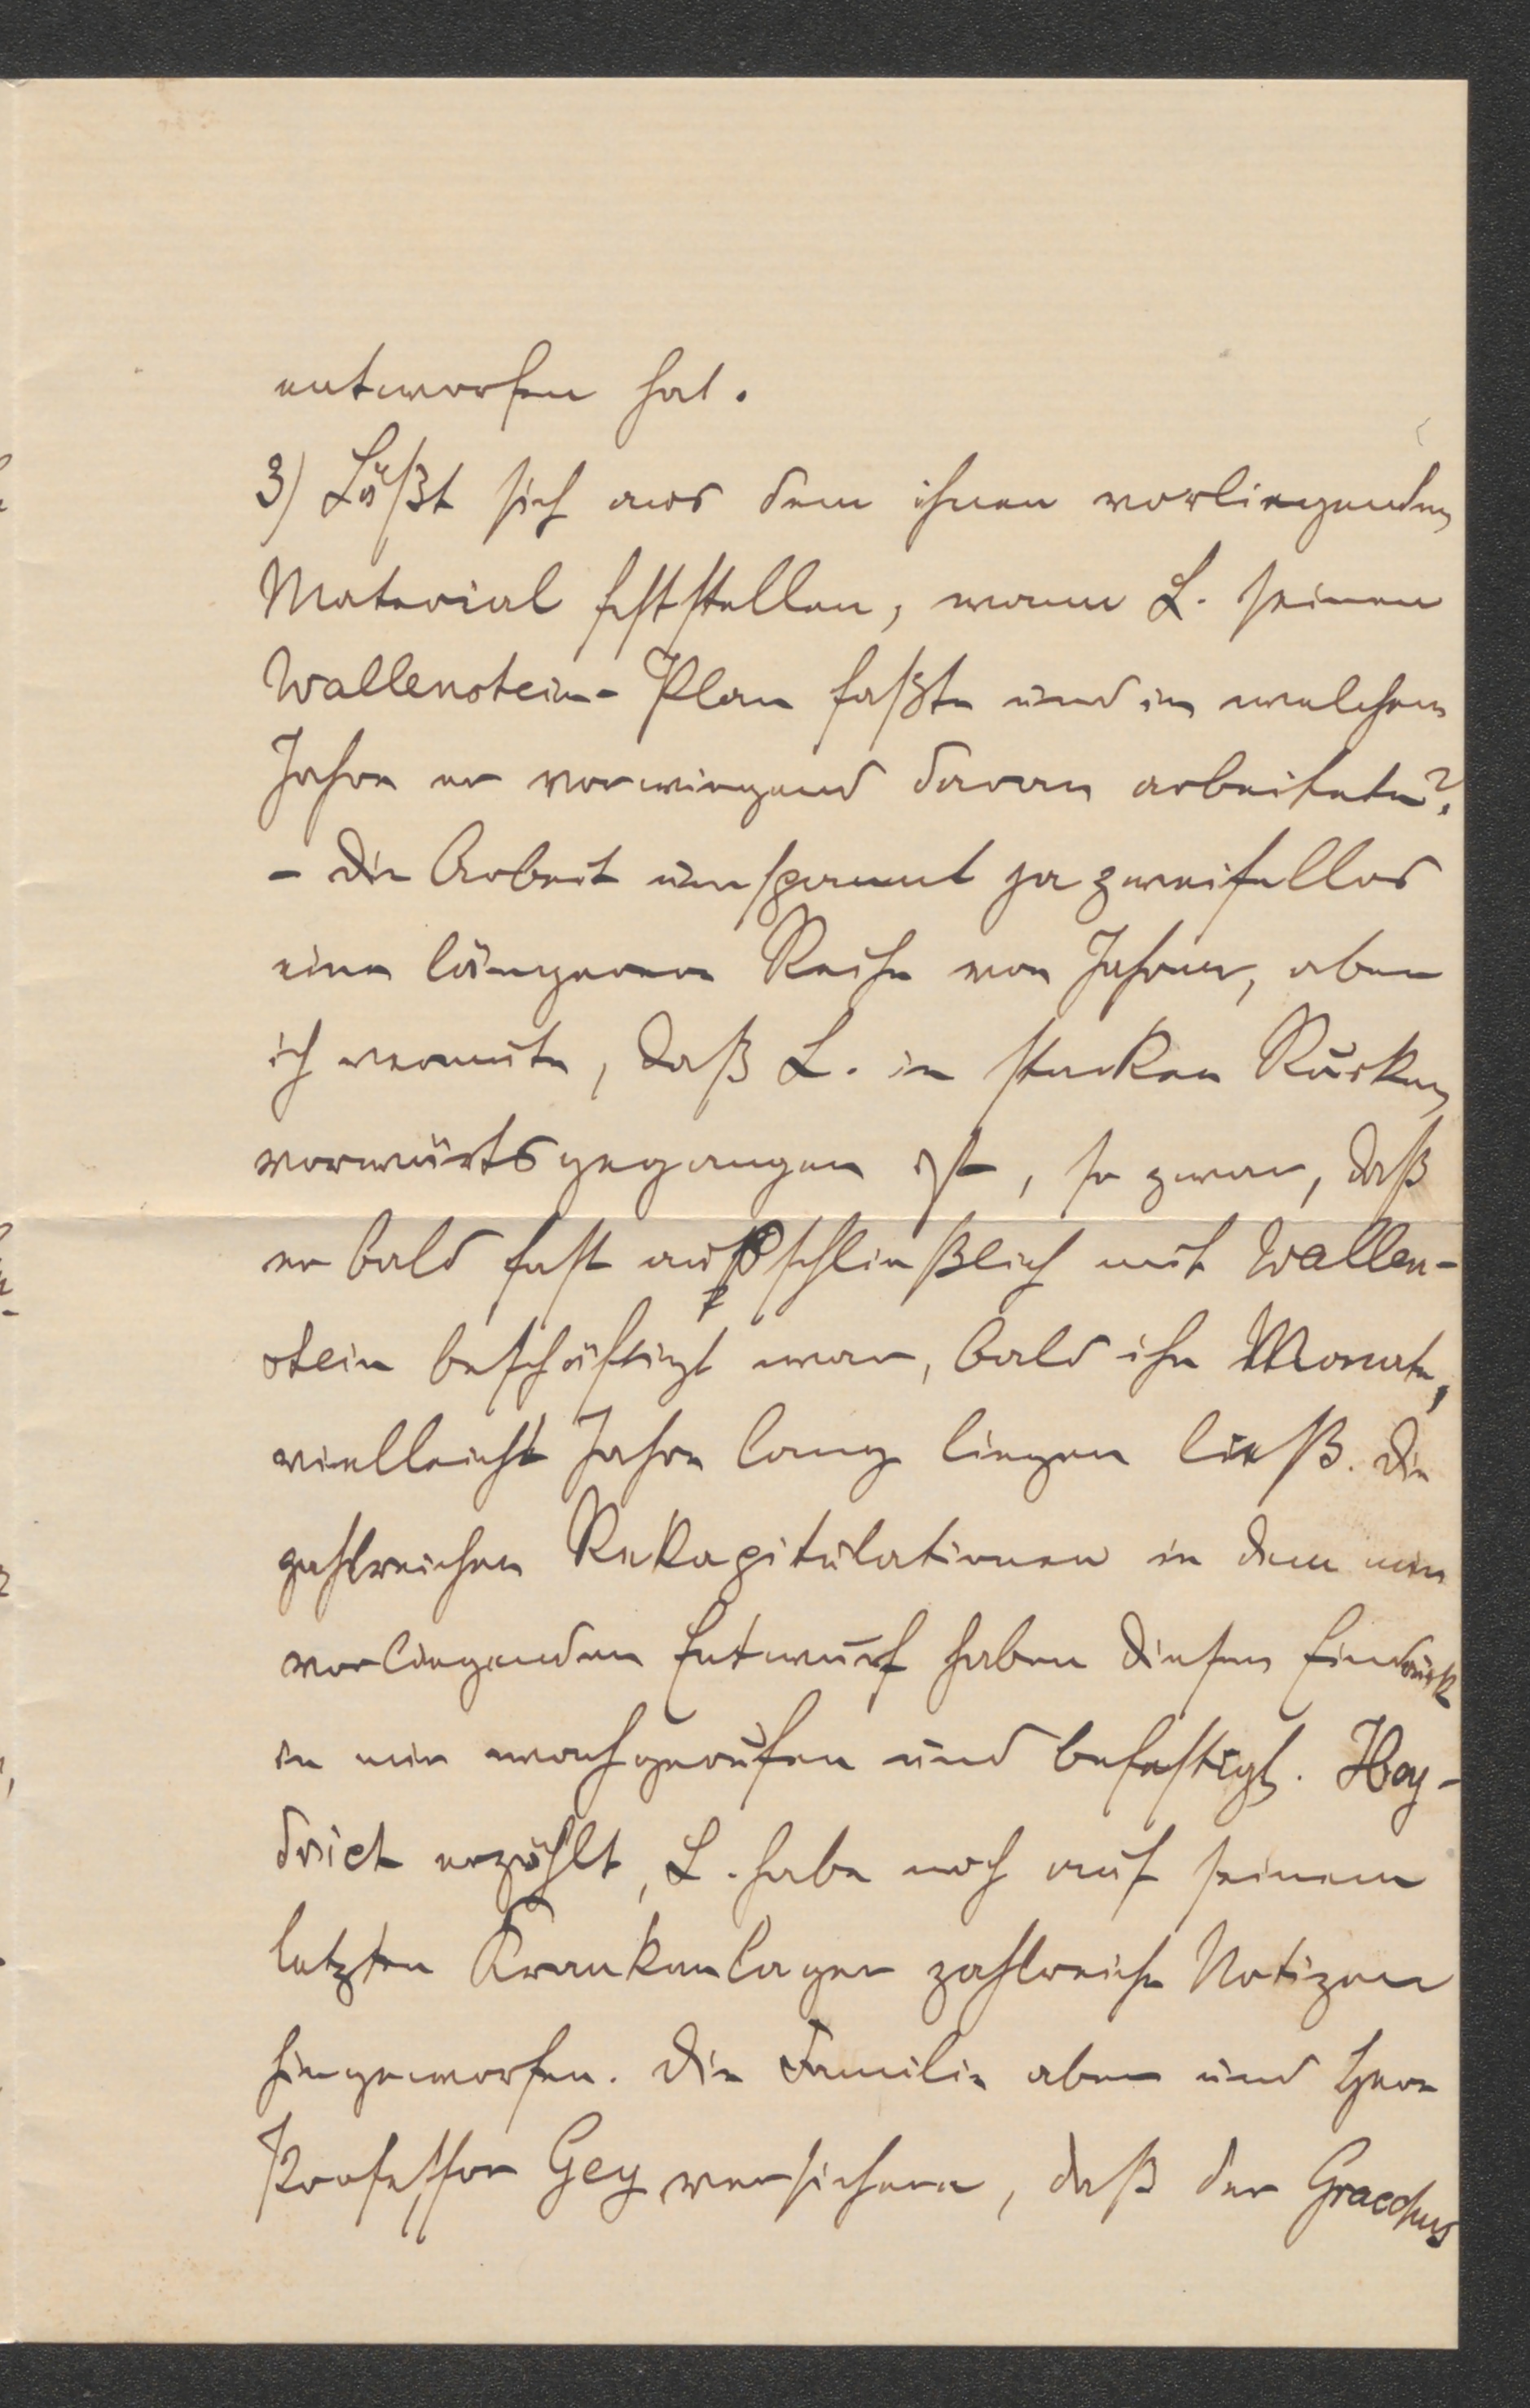 entworfen hat.
3) Läßt sich aus dem ihnen vorliegenden
Material feststellen, wann L. seinen
Wallenstein-Plan faßte und in welchem
Jahre er vorwiegend daran arbeitete?
- Die Arbeit umspannt ja zweifellos
eine längere Reihe von Jahren, aber
ich vermute, daß L. in starken Rucken
vorwärtsgegangen ist, so zwar, daß
er bald fast ausschließlich mit Wallen-
stein beschäftigt war, bald ihn Monate,
vielleicht Jahre lang liegen ließ. Die
zahlreichen Rekapitulationen in dem mir
vorliegenden Entwurf haben diesen Eindruck
in mir wachgerufen und befestigt. Hey-
drich erzählt, L. habe noch auf seinem
letzten Krankenlager zahlreiche Notizen
hingeworfen. Die Familie aber und Herr
Professor Gey versichern, daß der Gracchus